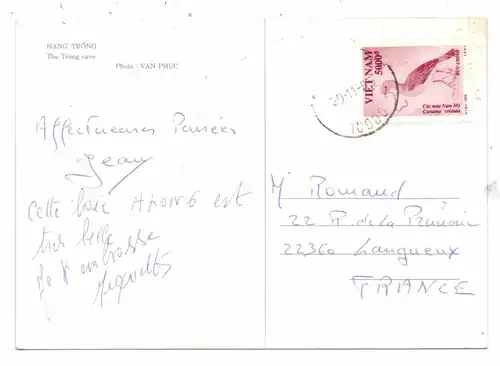 HANG TRỐNG
The Trong cave
Photo : VAN PHUC
Affectueuses Pensées
Jean
Cette baie ALONG est
très belle
Je t'embrasse
VIỆT NAM
5000đ
BƯU CHÍNH
Cúc mào Nam Mỹ
Cariama cristata
10000
Mr Romand
22 R. de la Prunaie
22360 Langueux
FRANCE